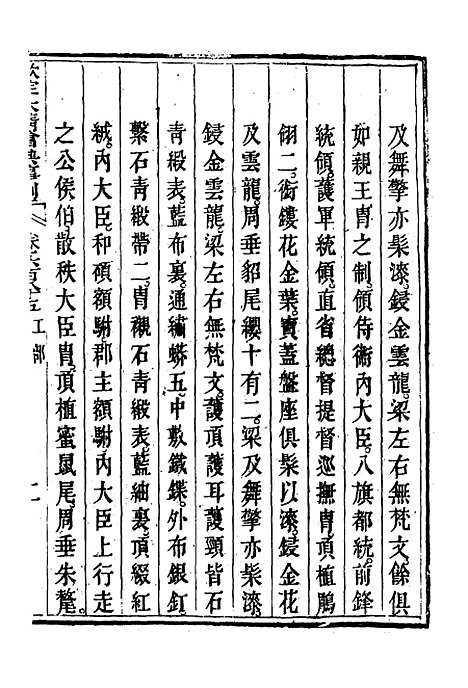 及舞擎亦髹漆。鋄金雲龍。梁左右無梵文。餘俱
如親王冑之制。領侍衞內大臣。八旗都統。前鋒
統領。護軍統領。直省總督提督巡撫冑。頂植鵰
翎二。銜鏤花金葉。寶蓋盤座俱髹以漆。鋄金花
及雲龍。周垂貂尾纓十有二。梁及舞擎亦髹漆。
鋄金雲龍。梁左右無梵文。護頂護耳護頸皆石
青緞表。藍布裏。通繡蟒五。中敷鐵鍱。外布銀釘。
繫石青緞帶二。冑襯石青緞表。藍紬裏。頂綴紅
絨。內大臣。和碩額駙。郡主額駙。內大臣上行走
之公侯伯。散秩大臣冑。頂植蜜鼠尾。周垂朱氂。
欽定大清會典事例 工部